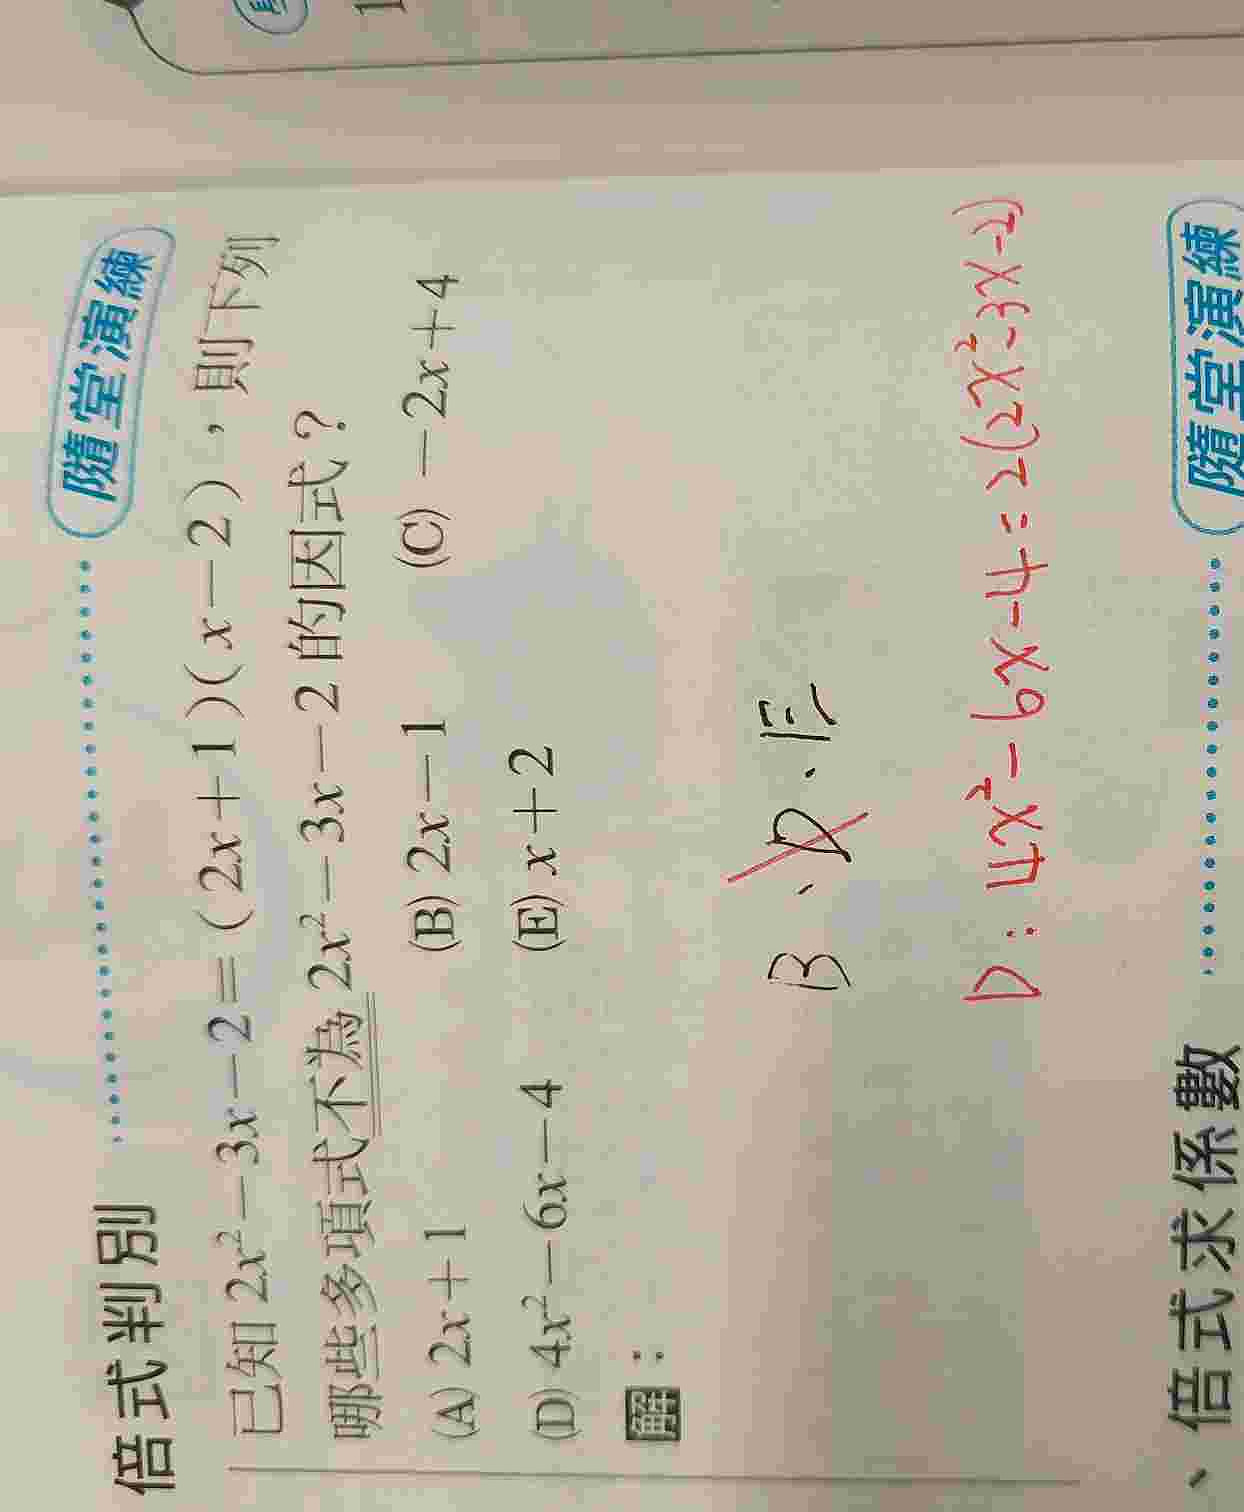 倍式判別 隨堂演練
已知 2x²－3x－2＝(2x＋1)(x－2)，則下列
哪些多項式不為 2x²－3x－2 的因式？
(A) 2x＋1 (B) 2x－1 (C) －2x＋4
(D) 4x²－6x－4 (E) x＋2
解：
B、D、E
D：4x²－6x－4＝2(2x²－3x－2)
、倍式求係數 隨堂演練